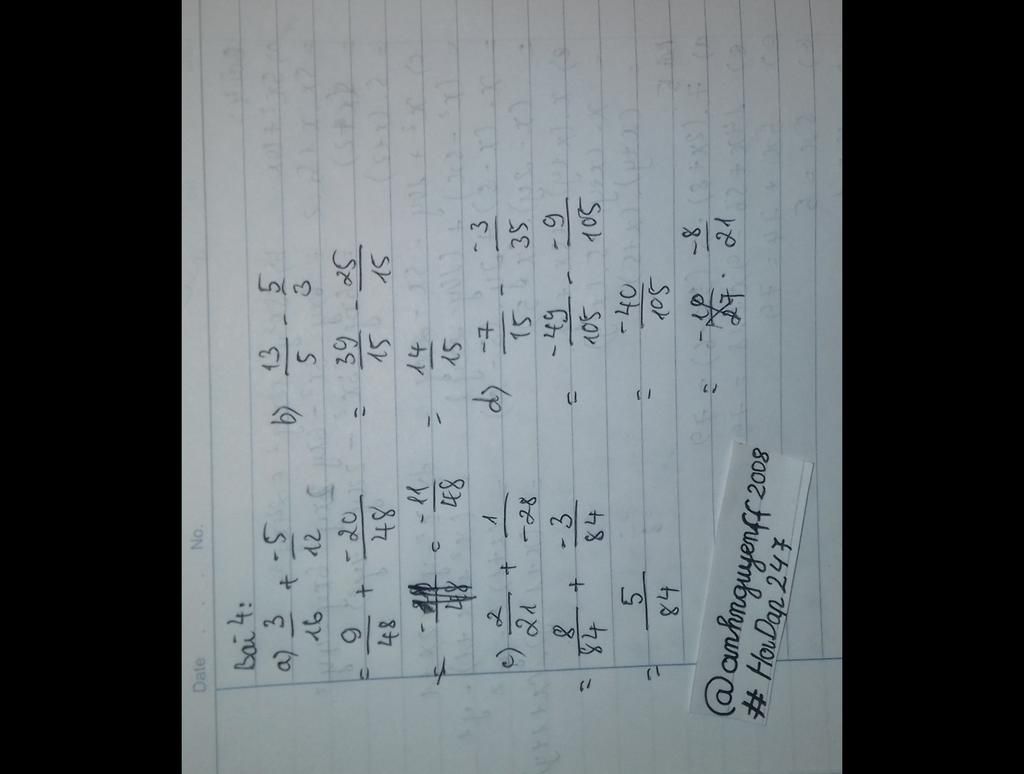 Date No.
Bài 4:
a) 3/16 + -5/12
= 9/48 + -20/48
= -11/48
b) 13/5 - 5/3
= 39/15 - 25/15
= 14/15
c) 2/21 + 1/-28
= 8/84 + -3/84
= 5/84
d) -7/15 - -3/35
= -49/105 - -9/105
= -40/105
= -8/21
@anhnguyenff2008
# HoiDap247